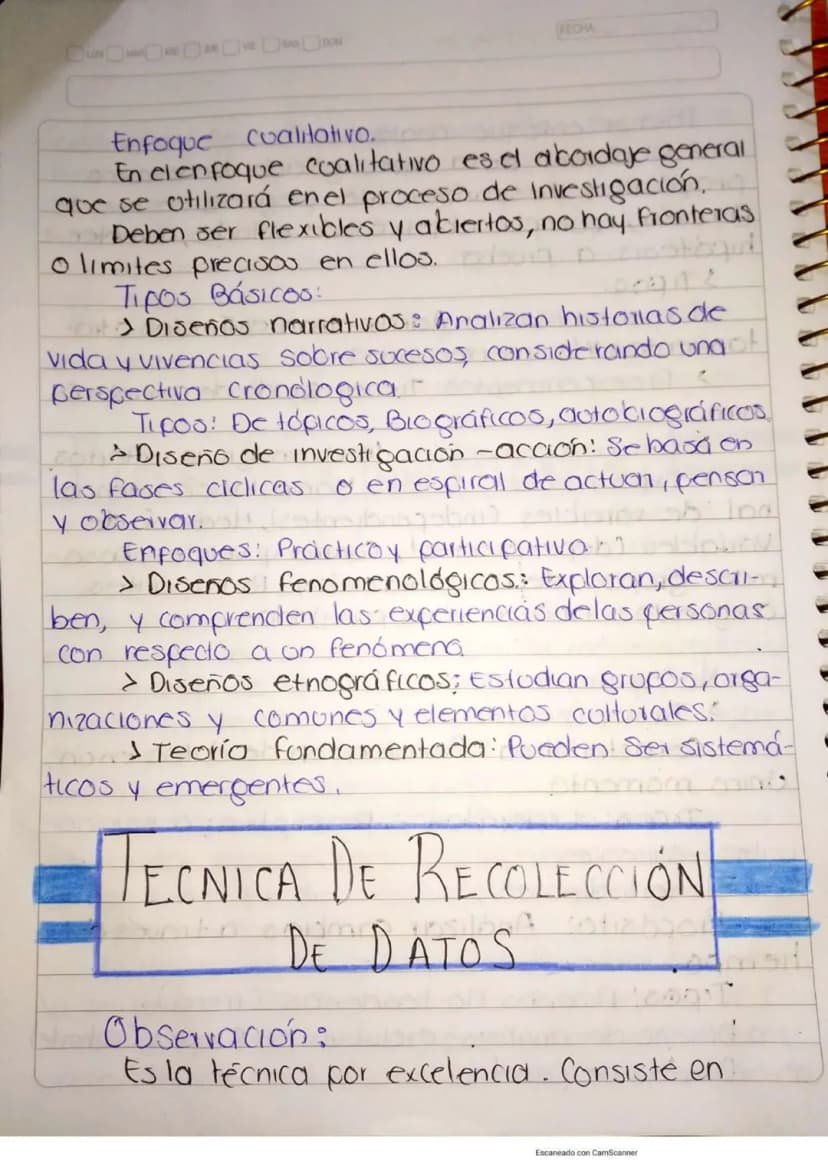 FECHA
LUN MAR MIE JUE VIE SAB DOM
Enfoque cualitativo.
En el enfoque cualitativo es el abordaje general
que se utilizará en el proceso de investigación.
Deben ser flexibles y abiertos, no hay fronteras
o limites precisos en ellos.
Tipos Básicos:
> Diseños narrativos: Analizan historias de
vida y vivencias sobre sucesos, considerando una
perspectiva cronologica
Tipos: De tópicos, Biográficos, autobiográficos
> Diseño de investigación -acción: Se basa en
las fases ciclicas o en espiral de actuar, pensar
y observar.
Enfoques: Práctico y participativo
> Diseños fenomenológicos: Exploran, descri-
ben, y comprenden las experiencias de las personas
con respecto a un fenómeno
> Diseños etnográficos: Estudian grupos, orga-
nizaciones y comunes y elementos culturales.
> Teoría fundamentada: Pueden Ser sistemá-
ticos y emergentes.
TECNICA DE RECOLECCIÓN
DE DATOS
Observación:
Es la técnica por excelencia. Consiste en
Escaneado con CamScanner